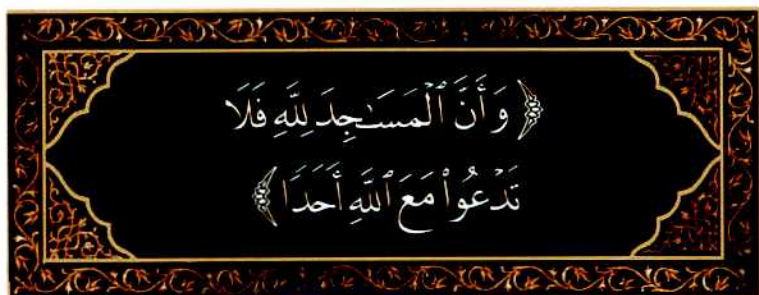 ﴿ وَأَنَّ ٱلْمَسَـٰجِدَ لِلَّهِ فَلَا
تَدْعُوا۟ مَعَ ٱللَّهِ أَحَدًا ﴾